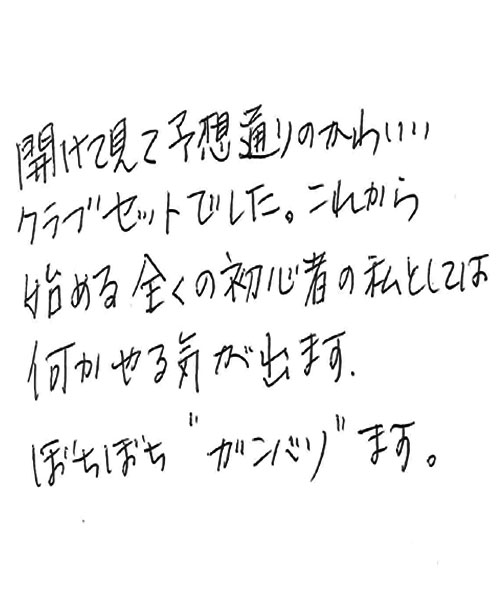 開けて見て予想通りのかわいい
クラブセットでした。これから
始める全くの初心者の私としては
何かやる気が出ます.
ぼちぼち"ガンバリ"ます。